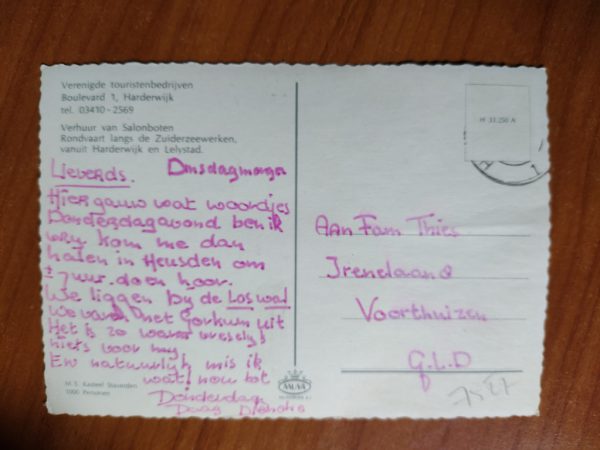 Verenigde touristenbedrijven
Boulevard 1, Harderwijk
tel. 03410-2569
Verhuur van Salonboten
Rondvaart langs de Zuiderzeewerken,
vanuit Harderwijk en Lelystad.
Lieverds. Dinsdagmorgen
Hier gauw wat woordjes
Donderdagavond ben ik
vrij kom me dan
halen in Heusden om
± 7 uur. doen hoor.
We liggen bij de Loswal
We varen met Gorkum uit
Het is zo warm vreselijk
niets voor mij
En natuurlijk mis ik
wat! nou tot
Donderdag
Daag
M.S. Kasteel Staverden
1000 Personen
H 33.250 A
Aan Fam Thies
Irenelaand
Voorthuizen
G.L.D